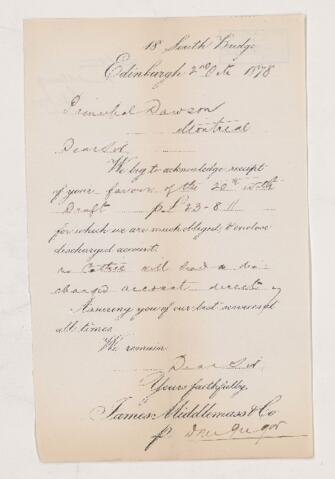 18 South Bridge
Edinburgh 2nd Oct 1878
Principal Dawson
Montreal
Dear Sir
We beg to acknowledge receipt
of your favour of the 20th with
Draft p £23-8-11
for which we are much obliged, & enclose
discharged account.
Mr will send a dis-
charged account direct
Assuring you of our best services at
all times
We remain
Dear Sir,
Yours faithfully,
James Middlemass & Co
p.